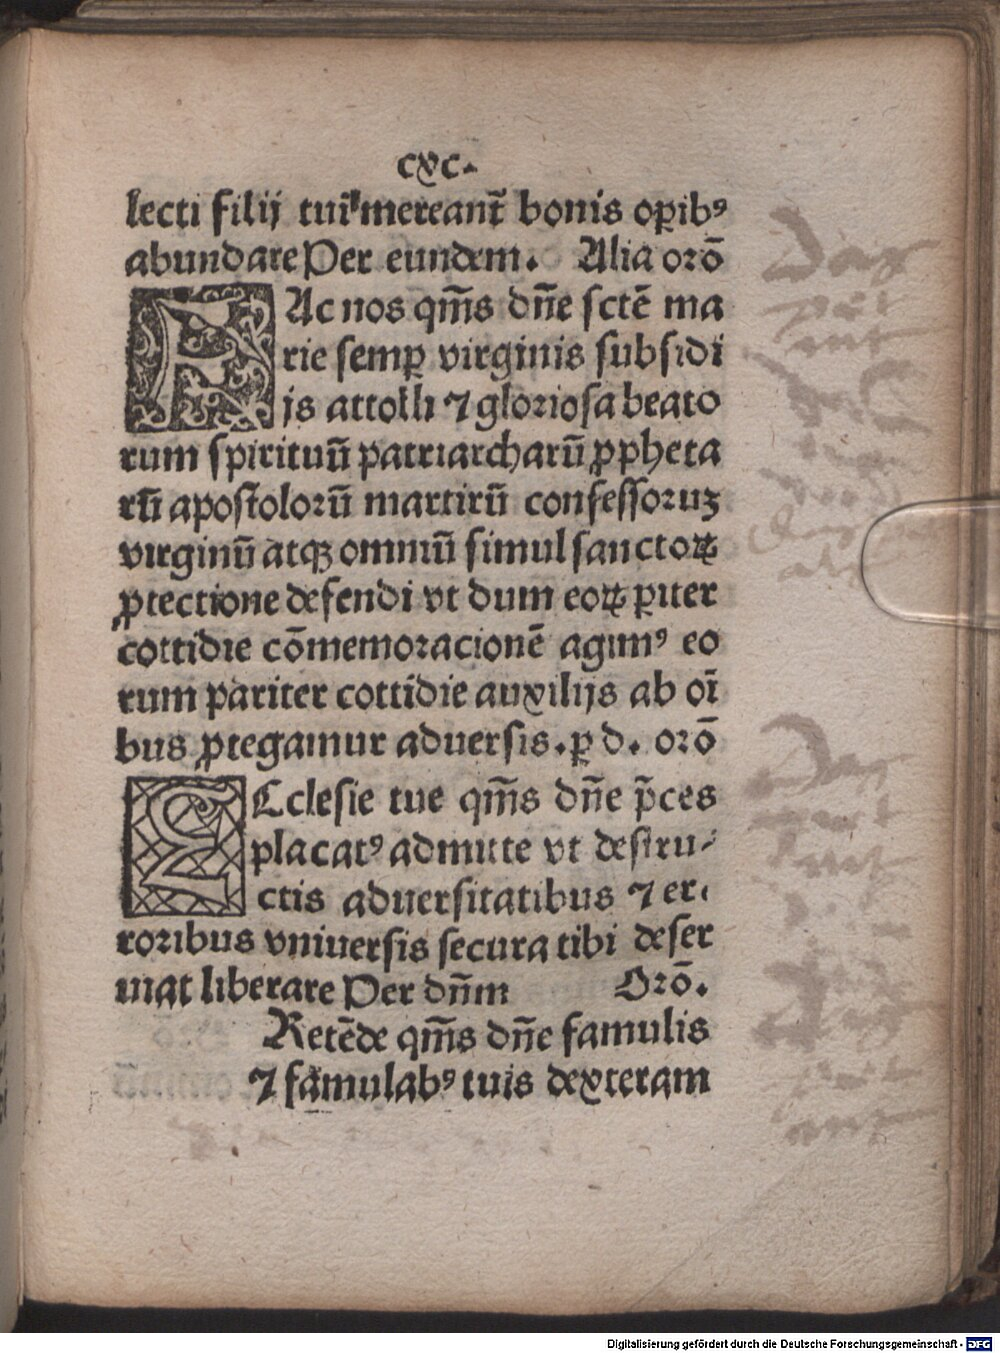 cxc.
lecti filij tui mereant᷑ bonis oꝑibꝰ
abundare Per eundem. Alia orō
FAc nos qm̄s dn̄e sctē ma
rie semꝑ virginis subsidi
js attolli ⁊ gloriosa beato
rum spirituū patriarcharū ꝓpheta
rū apostolorū martirū confessoruꝫ
virginū atqꝫ omniū simul sanctoꝝ
ꝓtectione defendi vt dum eoꝝ ꝑiter
cottidie cōmemoracionē agimꝰ eo
rum pariter cottidie auxilijs ab oī
bus ꝓtegamur aduersis. ꝑ d. orō
ECclesie tue qm̄s dn̄e p̄ces
placatꝰ admitte vt destru⸗
ctis aduersitatibus ⁊ er⸗
roribus vniuersis secura tibi deser
uiat liberare Per dn̄m Orō.
Retēde qm̄s dn̄e famulis
⁊ famulabꝰ tuis dexteram
Digitalisierung gefördert durch die Deutsche Forschungsgemeinschaft - DFG